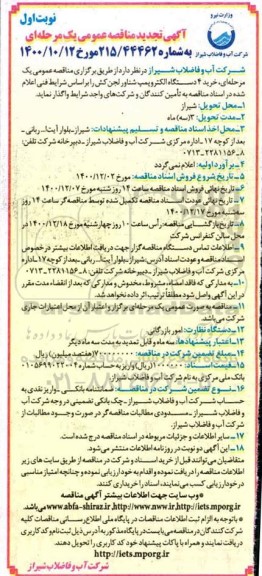 وزارت نیرو
شرکت آب و فاضلاب شیراز
نوبت اول
آگهی تجدید مناقصه عمومی یک مرحله‌ای
به شماره ۲۱۵/۴۴۴۶۲ مورخ ۱۴۰۰/۱۰/۱۲
شرکت آب و فاضلاب شیراز در نظر دارد از طریق برگزاری مناقصه عمومی یک
مرحله‌ای خرید ۴ دستگاه الکتروپمپ شناور لجن کش را بر اساس شرایط فنی اعلام
شده در اسناد مناقصه به تأمین کنندگان و شرکت‌های واجد شرایط واگذار نماید.
۱- محل تحویل: شیراز
۲- مدت تحویل: ۳ (سه) ماه
۳- محل اخذ اسناد مناقصه و تسلیم پیشنهادات: شیراز - بلوار آیت‌ا... ربانی -
بعد از کوچه ۱۷ - اداره مرکزی شرکت آب و فاضلاب شیراز - دبیرخانه شرکت تلفن:
۸-۲۲۸۱۱۵۶-۰۷۱۳
۴- برآورد اولیه: اعلام نمی‌گردد
۵- تاریخ شروع فروش اسناد مناقصه: مورخ ۱۴۰۰/۱۲/۰۲
۶- تاریخ نهائی فروش اسناد مناقصه ساعت ۱۴ روز شنبه مورخ ۱۴۰۰/۱۲/۰۷
۷- تاریخ نهائی عودت اسناد مناقصه تکمیل شده توسط مناقصه‌گر ساعت ۱۴ روز
سه‌شنبه مورخ ۱۴۰۰/۱۲/۱۷
۸- تاریخ بازگشایی مناقصه: رأس ساعت ۱۰ روز چهارشنبه مورخ ۱۴۰۰/۱۲/۱۸ در
محل سالن کنفرانس شرکت
۹- اطلاعات تماس دستگاه مناقصه‌گزار جهت دریافت اطلاعات بیشتر در خصوص
اسناد مناقصه و عودت اسناد آدرس: شیراز - بلوار آیت‌ا... ربانی - بعد از کوچه ۱۷ - اداره
مرکزی شرکت آب و فاضلاب شیراز - دبیرخانه شرکت تلفن: ۸-۲۲۸۱۱۵۶-۰۷۱۳
۱۰- به مدارکی که فاقد امضاء، مشروط، مخدوش و مدارکی که بعد از انقضاء مدت مقرر
در این آگهی واصل شود مطلقاً ترتیب اثر داده نخواهد شد.
۱۱- مناقصه به صورت عمومی یک مرحله‌ای برگزار و اعتبار آن از محل اعتبارات جاری
شرکت می‌باشد.
۱۲- دستگاه نظارت: امور بازرگانی
۱۳- اعتبار پیشنهادها: سه ماه و قابل تمدید به مدت سه ماه دیگر
۱۴- مبلغ تضمین شرکت در مناقصه:
۱۵- قیمت اسناد:
بانک ملی مرکزی به نام شرکت آب و فاضلاب شیراز
۱۶- نوع تضمین شرکت در مناقصه: ضمانتنامه بانکی - واریز نقدی به
حساب شرکت آب و فاضلاب شیراز - چک بانکی تضمینی در وجه شرکت آب
و فاضلاب شیراز - مسدودی مطالبات مناقصه‌گر در صورت وجود مطالبات از
شرکت آب و فاضلاب شیراز.
۱۷- سایر اطلاعات و جزئیات مربوطه در اسناد مناقصه درج شده است.
۱۸- این آگهی دو نوبت در روزنامه اطلاعات منتشر می‌شود.
متقاضیان می‌توانند قبل از خرید اسناد و شرکت در مناقصه از طریق سایت های زیر
اطلاعات مناقصه را دریافت نموده و اقدام به خودارزیابی نموده و چنانچه امتیاز مناسبی
در خودارزیابی کسب می‌نمایند، اسناد را خریداری نمایند.
*وب سایت جهت اطلاعات بیشتر آگهی مناقصه
www.abfa-shiraz.ir http://www.nww.ir http://iets.mporg.ir می‌باشد.
*با توجه به الزام ثبت اطلاعات مناقصات در پایگاه ملی اطلاع رسانی مناقصات کلیه
شرکت کنندگان در مناقصه می‌بایست در پایگاه مذکور به آدرس ذیل ثبت نام و کد کاربری
دریافت نمایند و همراه با پاکات پیشنهاد خود کد کاربری را تحویل دهند.
http://iets.mporg.ir
شرکت آب و فاضلاب شیراز